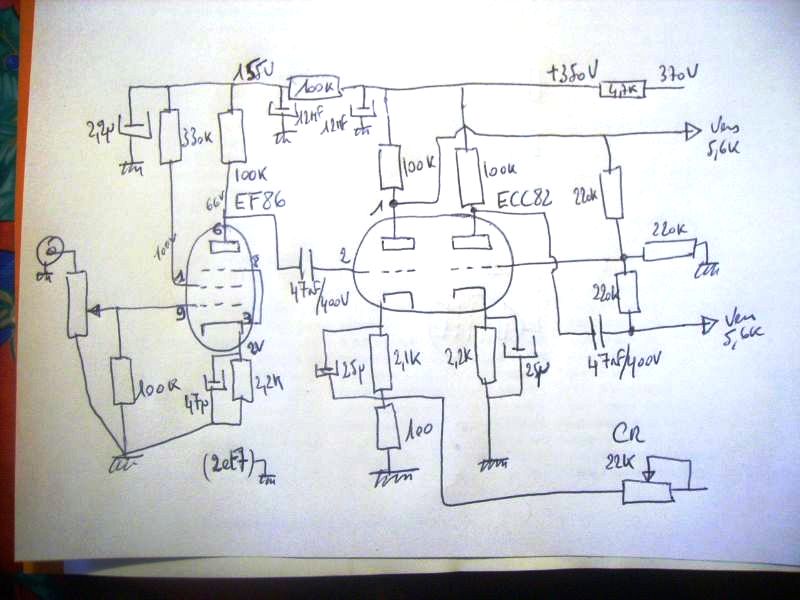 155V
100K
+350V
4,7K
370V
2,2µ
330K
12nF
12nF
Vers
5,6K
100K
66V
EF86
1
100K
100K
ECC82
220K
6
100V
8
2
220K
1
9
47nF/400V
3
2V
220K
Vers
5,6K
100K
47µ
2,2K
25µ
2,1K
2,2K
25µ
47nF/400V
100
(2et7)
CR
22K